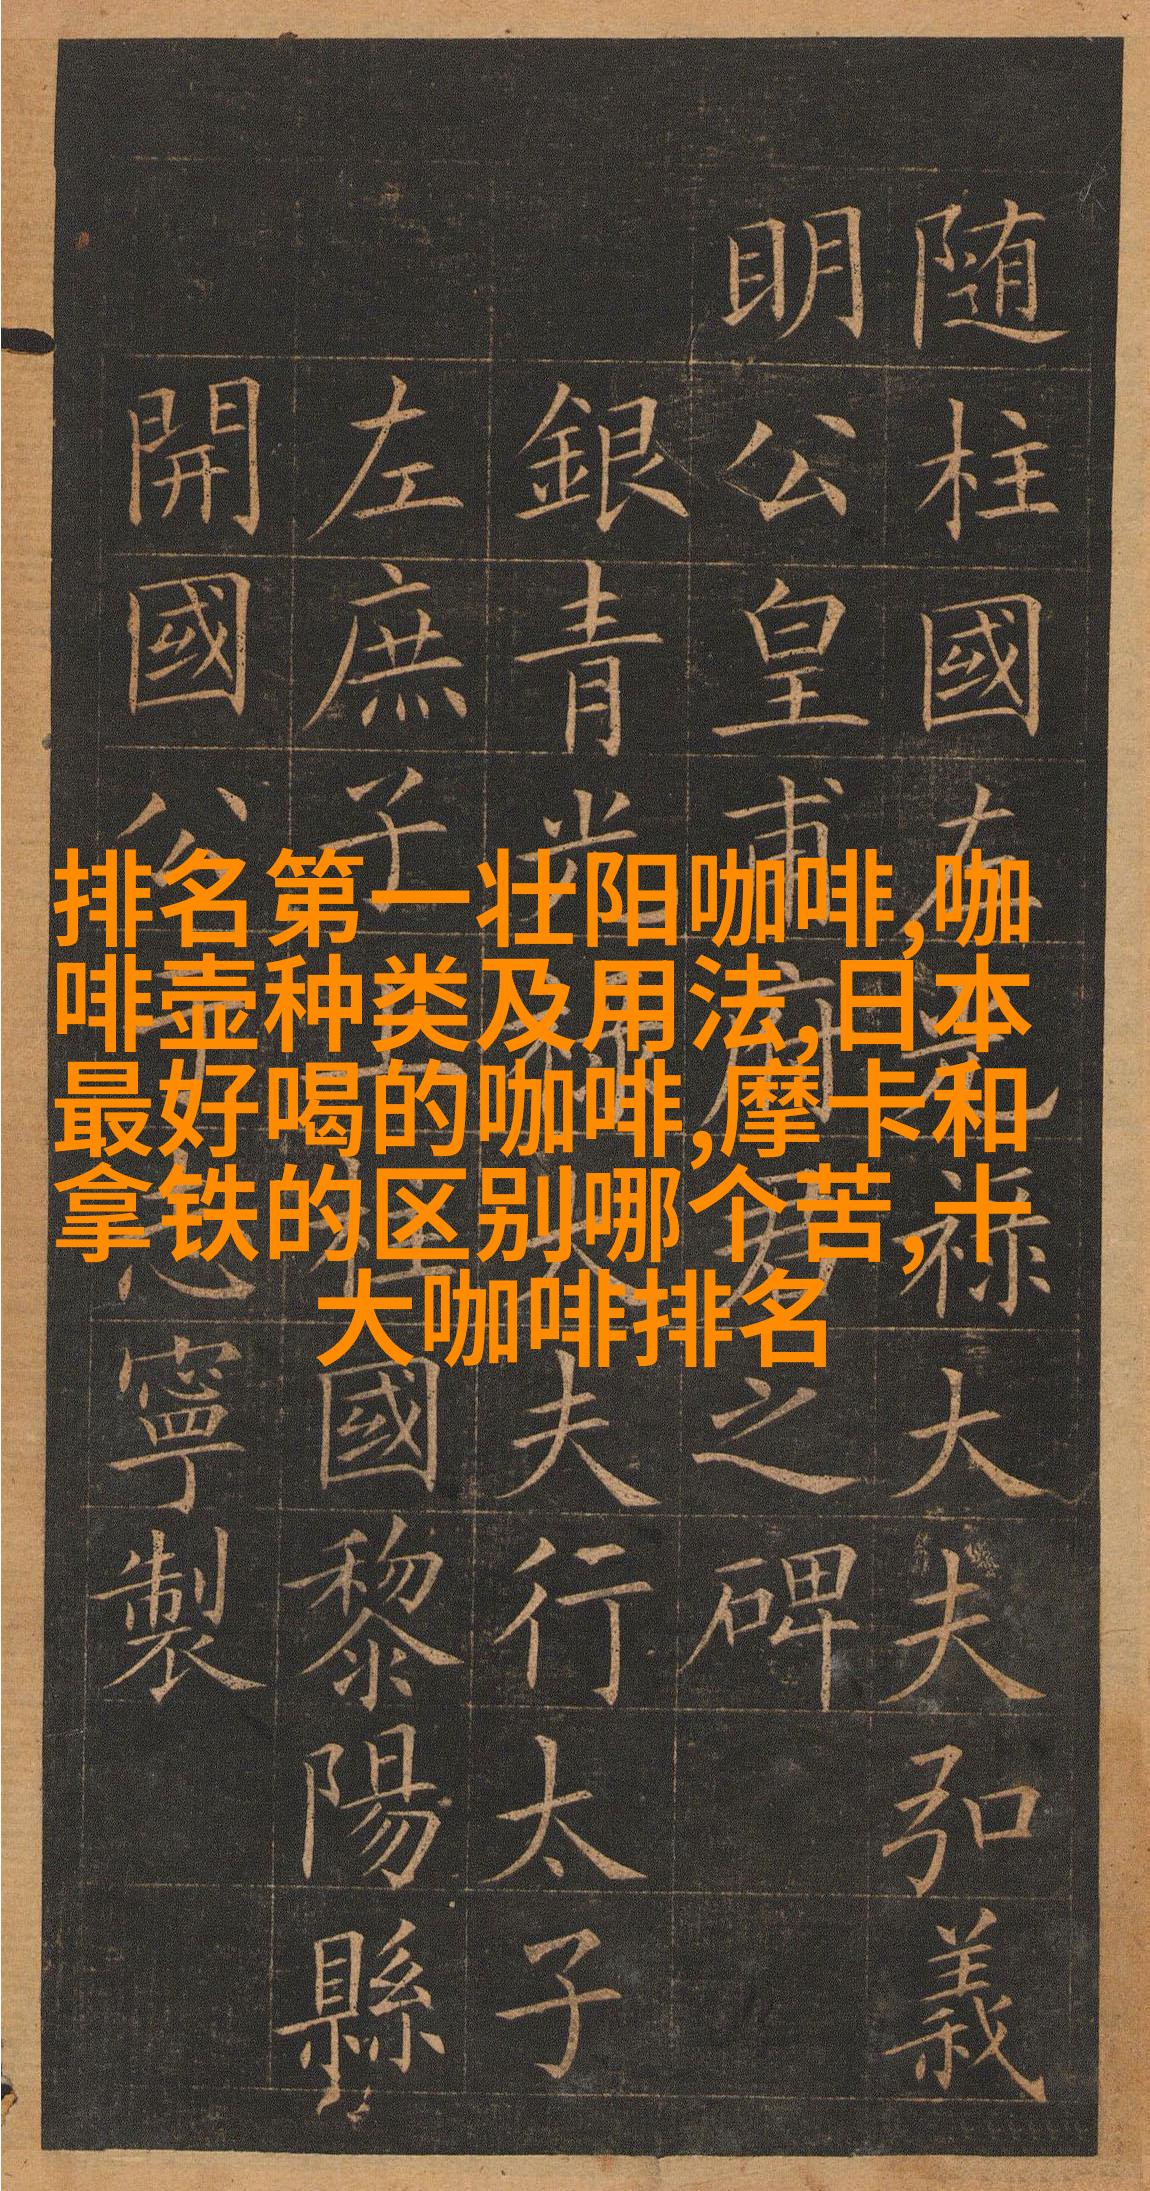 随柱國左光禄大夫弘義
明公皇甫府君之碑
銀青光禄大夫行太子
左庶子上柱國黎陽縣
開國公于志寧製
排名第一壮阳咖啡,咖
啡壶种类及用法,日本
最好喝的咖啡,摩卡和
拿铁的区别哪个苦,十
大咖啡排名